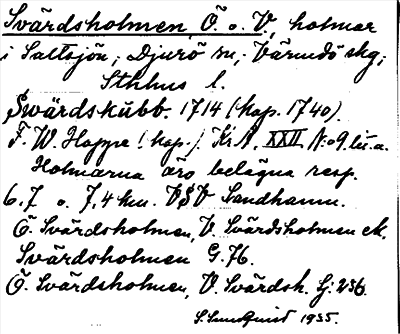 Svärdsholmen, Ö. o. V., holmar
i Saltsjön, Djurö sn, Värmdö skg,
Sthlms l.
Swärdskubb. 1714 (kop. 1740).
F. W. Hoppe (kop.) Kr A. XXII N:o 9 lit. a.
Holmarna äro belägna resp.
6,7 o. 7,4 km. VSV Sandhamn.
Ö. Svärdsholmen, V. Svärdsholmen ek.
Svärdsholmen G. 76.
Ö. Svärdsholmen, V. Svärdsh. Gj: 236.
S. Sundquist 1935.